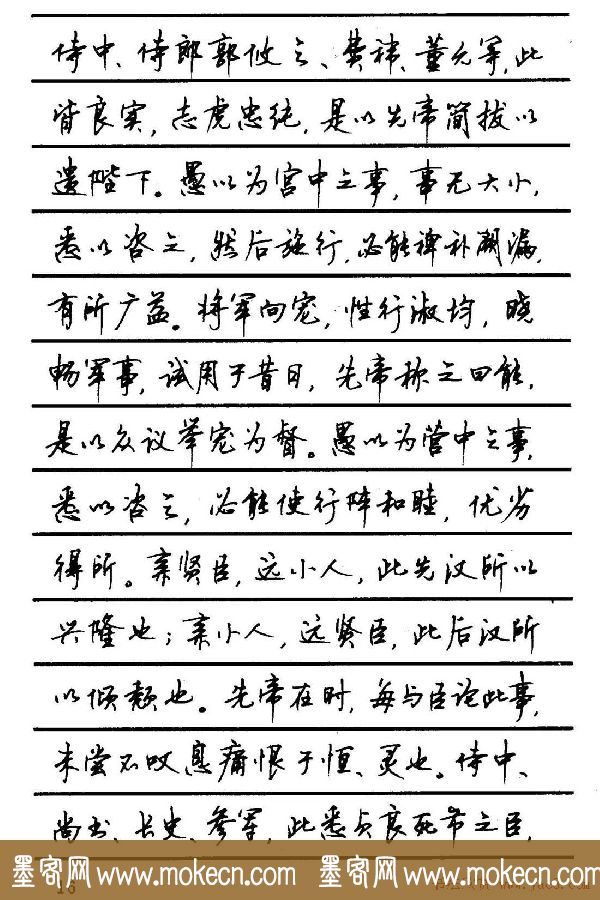 侍中、侍郎郭攸之、费祎、董允等,此
皆良实,志虑忠纯,是以先帝简拔以
遗陛下。愚以为宫中之事,事无大小,
悉以咨之,然后施行,必能裨补阙漏,
有所广益。将军向宠,性行淑均,晓
畅军事,试用于昔日,先帝称之曰能,
是以众议举宠为督。愚以为营中之事,
悉以咨之,必能使行阵和睦,优劣
得所。亲贤臣,远小人,此先汉所以
兴隆也;亲小人,远贤臣,此后汉所
以倾颓也。先帝在时,每与臣论此事,
未尝不叹息痛恨于桓、灵也。侍中、
尚书、长史、参军,此悉贞良死节之臣,
墨客网 www.mokecn.com 墨客网 www.mokecn.com
16